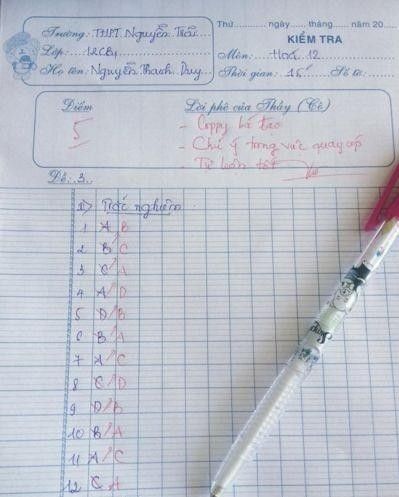 Thứ.......... ngày ...... tháng ...... năm 20....
Trường: THPT Nguyễn Trãi
KIỂM TRA
Lớp: 12CB1
Môn: Hoá 12
Họ tên: Nguyễn Thanh Duy
Thời gian: 15' Số tờ:
Điểm
Lời phê của Thầy (Cô)
5
- Coppy bá đạo
- Chú ý trong việc quay cóp
- Tự luận tốt
Đề: 3
I) Trắc nghiệm
1 A/B
2 B/C
3 C/A
4 A/D
5 D/B
6 B/A
7 A/C
8 C/D
9 D/B
10 B/A
11 A/C
12 C A